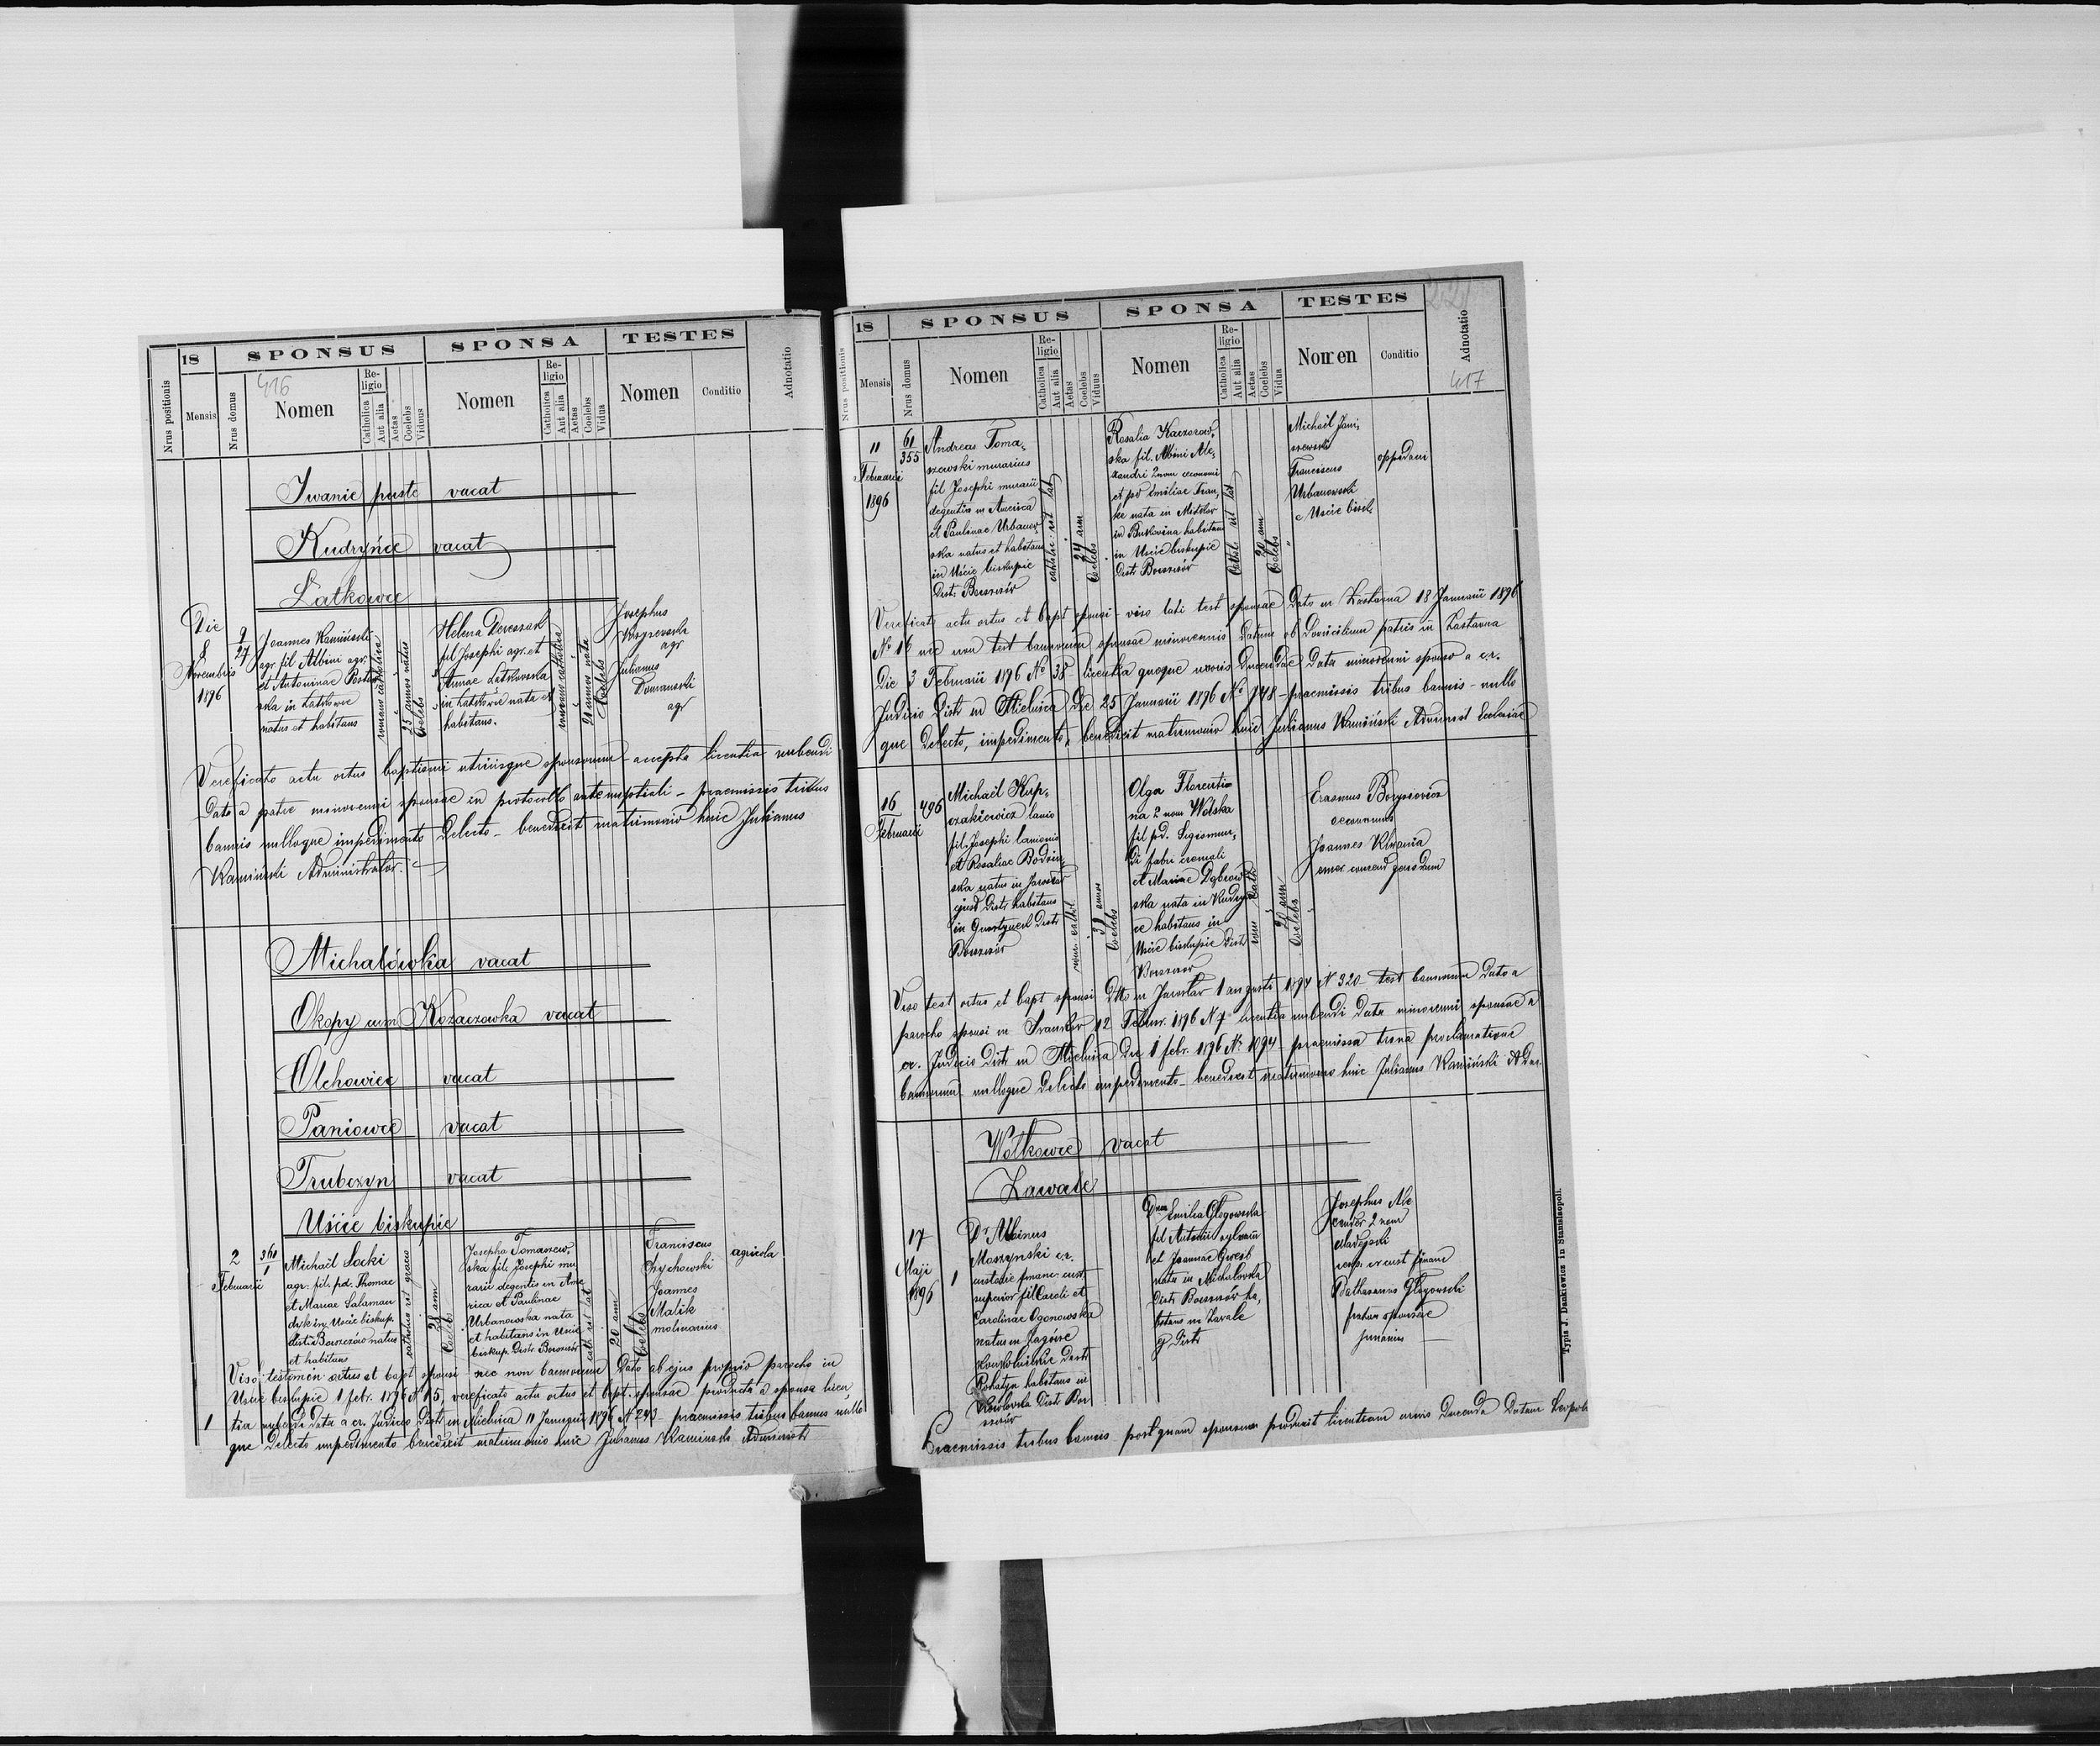 18
SPONSUS
SPONSA
TESTES
Adnotatio
Nrus positionis
Mensis
Nrus domus
416
Nomen
Religio
Catholica
Aut alia
Aetas
Coelebs
Viduus
Nomen
Religio
Catholica
Aut alia
Aetas
Coelebs
Vidua
Nomen
Conditio
Iwanie puste vacat
Kudryńce vacat
Latkowce
Die
8
Novembris
1896
9
27
Joannes Kamiński
agr. fil Albini agr.
et Antoninae
ska in Latkowce
natus et habitans
romano catholica
25 annos natus
Coelebs
Helena Dereszak
fil Josephi agr. et
Annae Latkowska
in Latkowce nata et
habitans.
romano catholica
21 annos nata
Coelebs
Josephus
agr
Julianus
Domanski
agr
Vereficato actu ortus baptismi utriusque sponsorum – accepta licentia nubendi
Data a patre minorenni sponsae in protocollo antenuptiali – praemissis tribus
bannis nulloque impedimento Delecto – benedixit matrimonio huic Julianus
Kamiński Administrator.
Michałówka vacat
Okopy cum Kozaczowka vacat
Olchowiec vacat
Paniowce vacat
Trubczyn vacat
Uście biskupie
2
Februarii
361
1
Michaël Socki
agr. fil. pd. Thomae
et Mariae Salaman
dyk in Uście biskup.
distr Borszczów natus
et habitans
catholic rit graeco
28 ann
Coelebs
Josepha Tomaszew,
ska fil. Josephi mu
rarii degentis in Ame
rica et Paulinae
Urbanowska nata
et habitans in Uście
biskup. Distr Borszczów
cath rit lat
20 ann
Coelebs
Franciscus
Zrychowski
Joannes
Malik
molinarius
agricola
Viso testimon ortus et bapt sponsi nec non bannorum Dato ab ejus proprio parocho in
Uście biskupie 1 febr. 1896 N 15, vereficato actu ortus et bapt. sponsae producta a sponsa licen
1 tia nubendi Data a cr. Judicio Distr in Mielnica 11 Januarii 1896 N 243 praemissis tribus bannis nullo
que Delecto impedimento benedixit matrimonio huic Julianus Kaminski Administr
18
SPONSUS
SPONSA
TESTES
221
Nrus positionis
Mensis
Nrus domus
Nomen
Religio
Catholica
Aut alia
Aetas
Coelebs
Viduus
Nomen
Religio
Catholica
Aut alia
Aetas
Coelebs
Vidua
Nomen
Conditio
Adnotatio
417
11
Februarii
1896
61
355
Andreas Toma,
szewski murarius
fil Josephi murarii
degentis in America
et Paulinae Urbanow
ska natus et habitans
in Uście biskupie
Distr. Borszczów
catholic rit lat
24 ann
Coelebs
Rosalia Kaczorow,
ska fil. Albini Ale,
xandri 2nom oeconomi
et pd Emiliae Fran,
ke nata in
in Bukovina habitans
in Uście biskupie
Distr Borszczów
Cathol rit lat
20 ann
Coelebs
Michaël Jani,
szewski
Franciscus
Urbanowski
e Uście bisk.
oppidani
Vereficato actu ortus et bapt sponsi – viso lati test sponsae Dato in Zastavna 18 Januarii 1896
No 16 nec non test bannorum sponsae minorennis Datum ob Domicilium patris in Zastavna
Die 3 Februarii 1896 No 38 – licentia quoque uxoris Ducendae Data minorenni sponso a c.r.
Judicio Distr in Mielnica Die 25 Januarii 1896 No 748 – praemissis tribus bannis – nullo
que Delecto, impedimento, benedixit matrimonio huic Julianus Kamiński Administ Ecclesiae
16
Februarii
496
Michaël Kup,
czakiewicz lanio
fil. Josephi lanionis
et Rosaliae Bodzin,
ska natus in Jarosław
ejusd Distr habitans
in Gusztynek Distr
Borszczów
rom. cathol.
33 annos
Coelebs
Olga Florenti
na 2 nom Wolska
fil pd. Sigismun,
di fabri cremati
et Mariae Dąbrow
ska nata in Kudryń
ce habitans in
Uście biskupie Distr
Borszczów
rom cath
20 ann
Coelebs
Erasmus Borysiewicz
oeconomus
Joannes
emer. comend gensdarm
Viso test ortus et bapt sponsi Dtto in Jarosław 1 augusti 1894 N 320 – test bannorum Dato a
parocho sponsi in 12 Febuar. 1896 N 7 licentia nubendi Data minorenni sponsae a
cr. Judicio Distr in Mielnica Die 1 febr. 1896 No 1094 – praemissa trina proclamatione
bannorum nulloque Delecto impedimento – benedixit matrimonio huic Julianus Kamiński Adm.
Wołkowce vacat
Zawale
17
Maji
1896
1
Dr Albinus
Moszynski c.r.
custodie financ. cust
superior fil Caroli et
Carolinae Ogonowska
natus in
Distr
Rohatyn habitans in
Distr Bor
szczów
Dna Emilia Głogowska
fil Antonii sylvani
et Joannae
nata in Michalowka
Distr Borszczów ha,
bitans in Zavale
ej Distr
Josephus Ale
xander 2 nom
Madejski
resp. cr cust financ
Balthasarus Głogowski
frater sponsae
Praemissis tribus bannis postquam sponsum produxit licentiam uxoris Ducenda Datam Leopoli
Typis J. Dankiewicz in Stanislaopoli.